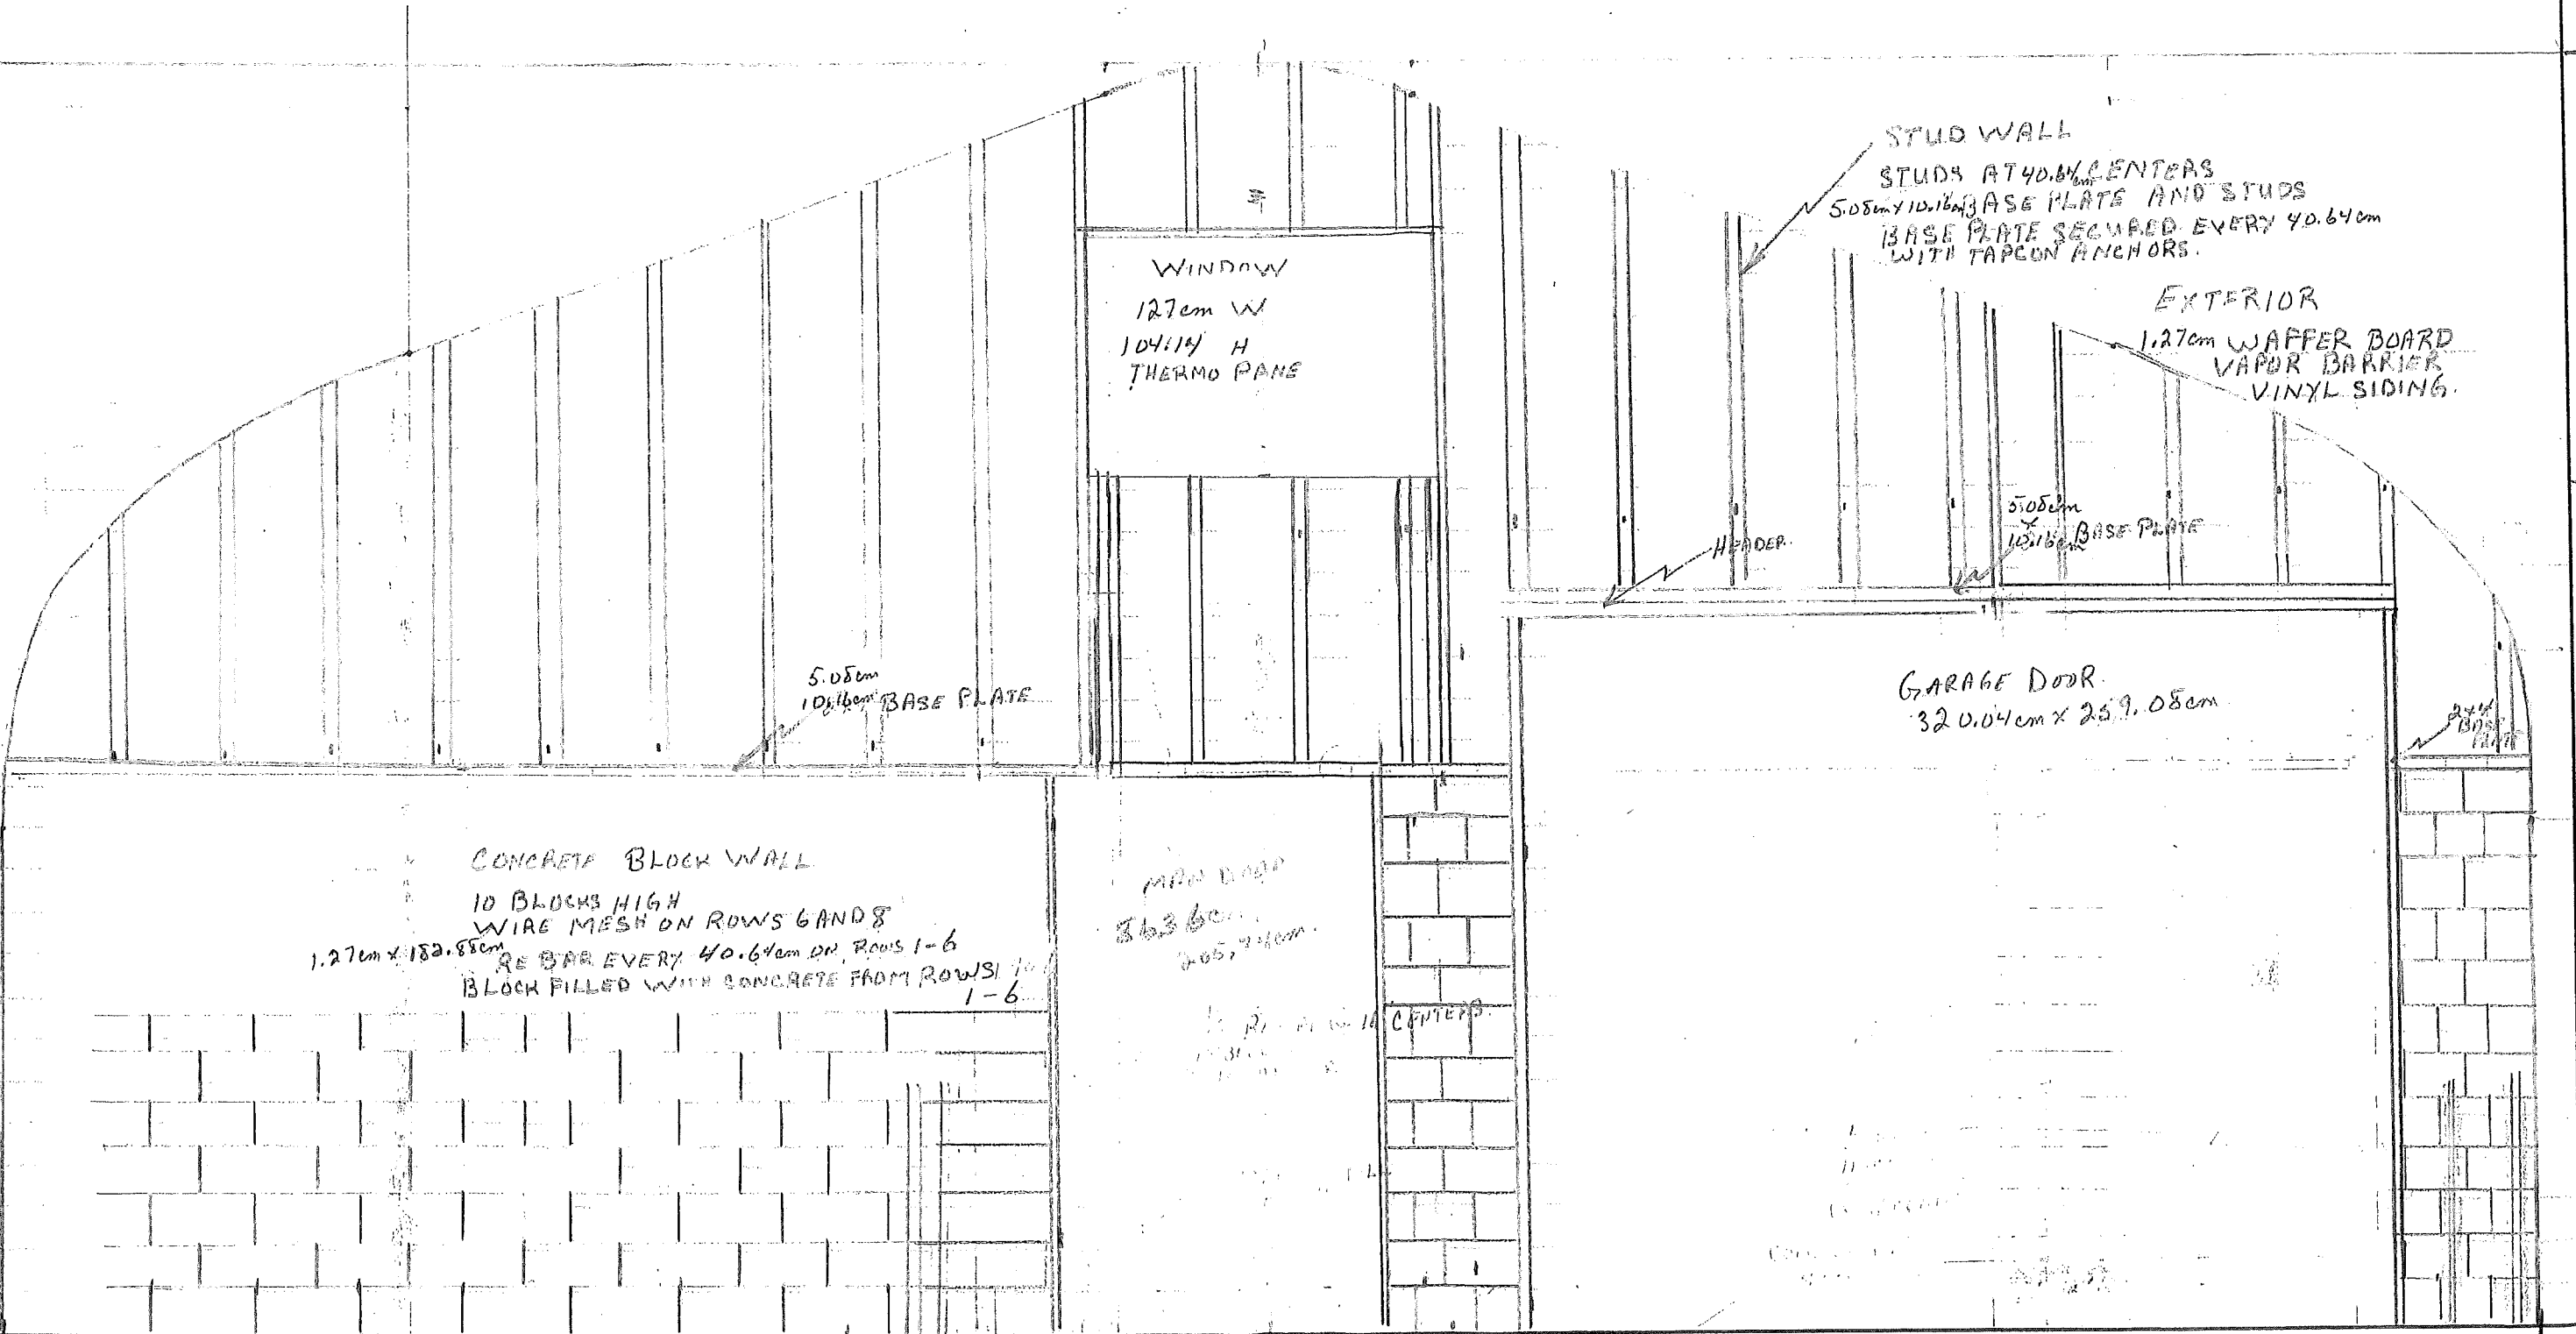 STUD WALL
STUDS AT 40.64cm CENTERS
5.08cm x 10.16cm BASE PLATE AND STUDS
BASE PLATE SECURED EVERY 40.64cm
WITH TAPCON ANCHORS.
EXTERIOR
1.27cm WAFFER BOARD
VAPOR BARRIER
VINYL SIDING.
WINDOW
127cm W
104.14 H
THERMO PANE
HEADER
5.08cm
x
10.16cm BASE PLATE
5.08cm
10.16cm BASE PLATE
GARAGE DOOR
320.04cm x 259.08cm
2x4
BASE
PLATE
CONCRETE BLOCK WALL
10 BLOCKS HIGH
WIRE MESH ON ROWS 6 AND 8
1.27cm x 182.88cm
RE BAR EVERY 40.64cm ON ROWS 1-6
BLOCK FILLED WITH CONCRETE FROM ROWS
1-6
MAN DOOR
CENTERS